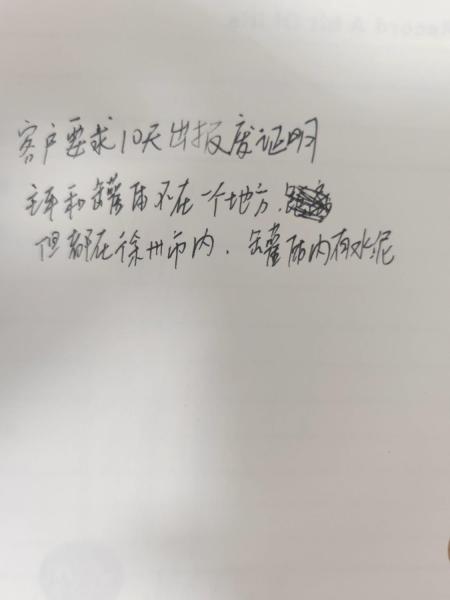 客户要求10天出报废证明
车和罐体不在一个地方.
但都在徐州市内.罐体内有水泥